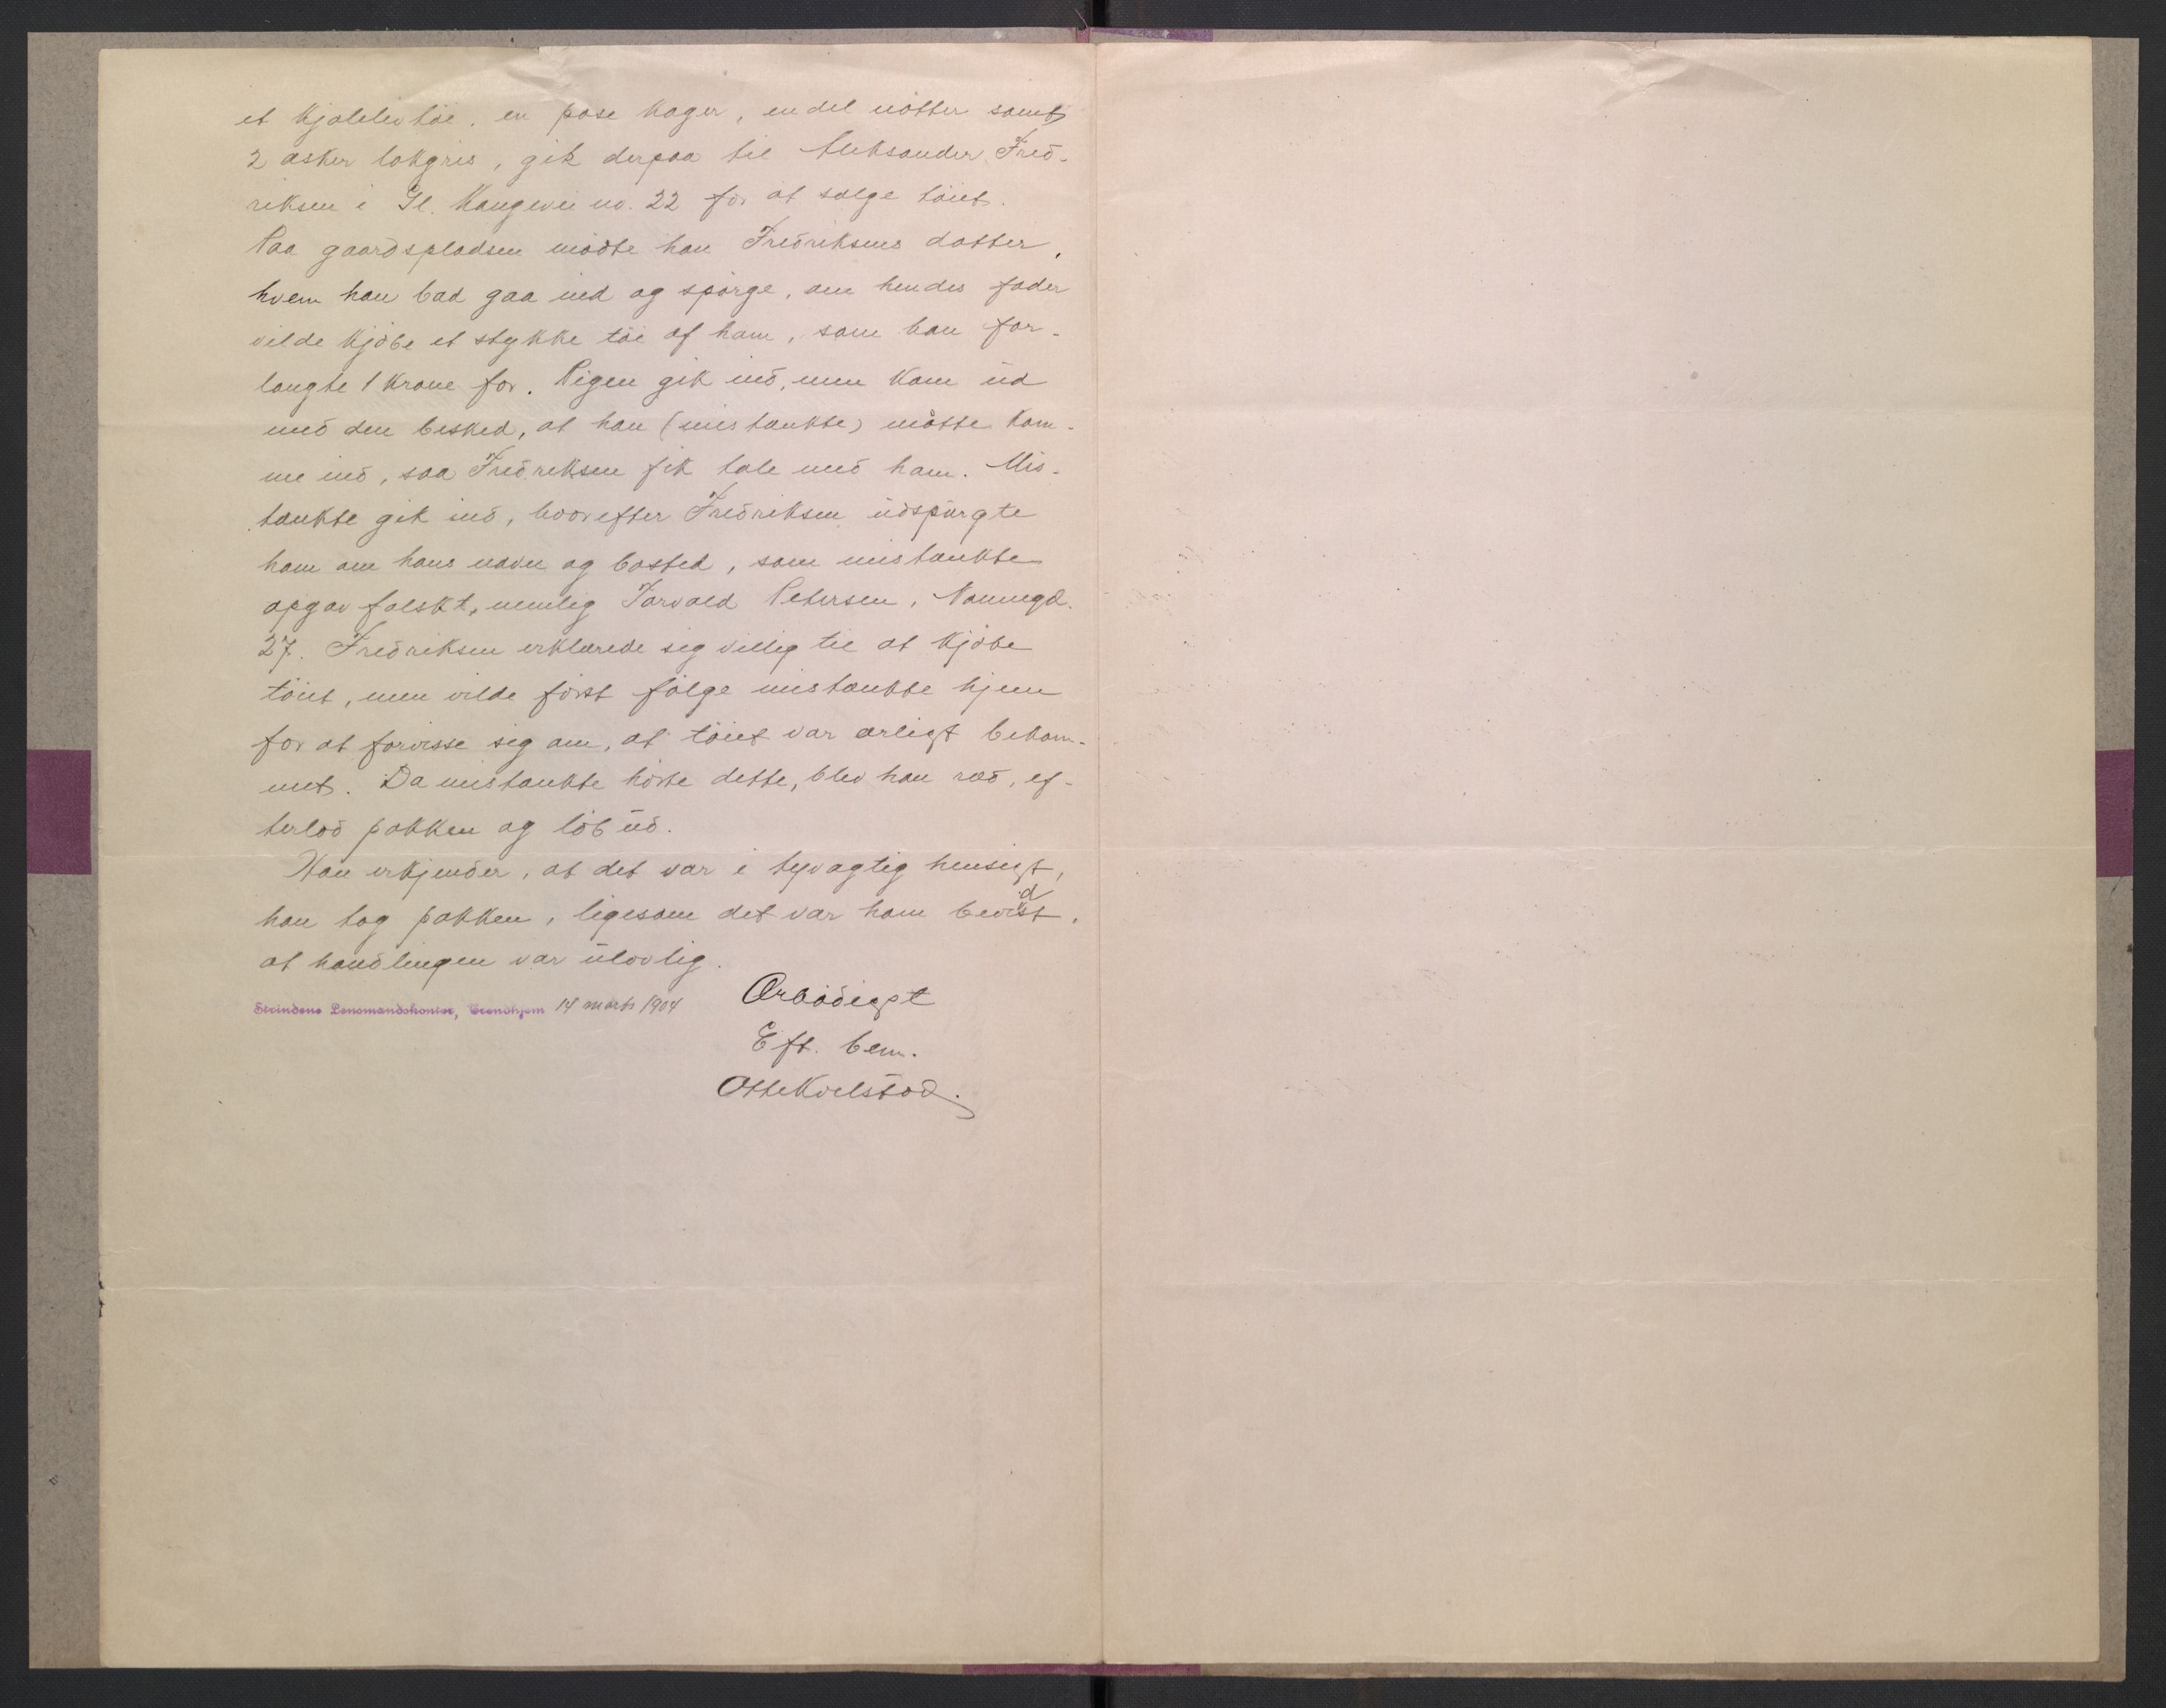 et kjoleliv töi, en pose kager, en del nötter samt
2 æsker lakris, gik derpaa til Aleksander Fred-
riksen i Gl. Kongevei no. 22 for at sælge töiet.
Paa gaardspladsen mödte han Fredriksens datter,
hvem han bad gaa ind og spörge, om hendes fader
vilde kjöbe et stykke töi af ham, som han for-
langte 1 krone for. Pigen gik ind, men kom ud
med den besked, at han (mistænkte) måtte kom-
me ind, saa Fredriksen fik tale med ham. Mis-
tænkte gik ind, hvorefter Fredriksen udspurgte
ham om hans navn og bosted, som mistænkte
opgav falskt, nemlig Torvald Petersen,
27. Fredriksen erklærede sig villig til at kjöbe
töiet, men vilde först fölge mistænkte hjem
for at forvisse sig om, at töiet var ærligt bekom-
met. Da mistænkte hörte dette, blev han ræd, ef-
terlod pakken og löb ud.
Han erkjender, at det var i tyvagtig hensigt,
han tog pakken, ligesom det var ham bevidst,
at handlingen var ulovlig.
Strindens Lensmandskontor, Trondhjem 14 marts 1904 Ærbödigst
Eft. bem.
Otte Kvelstad.